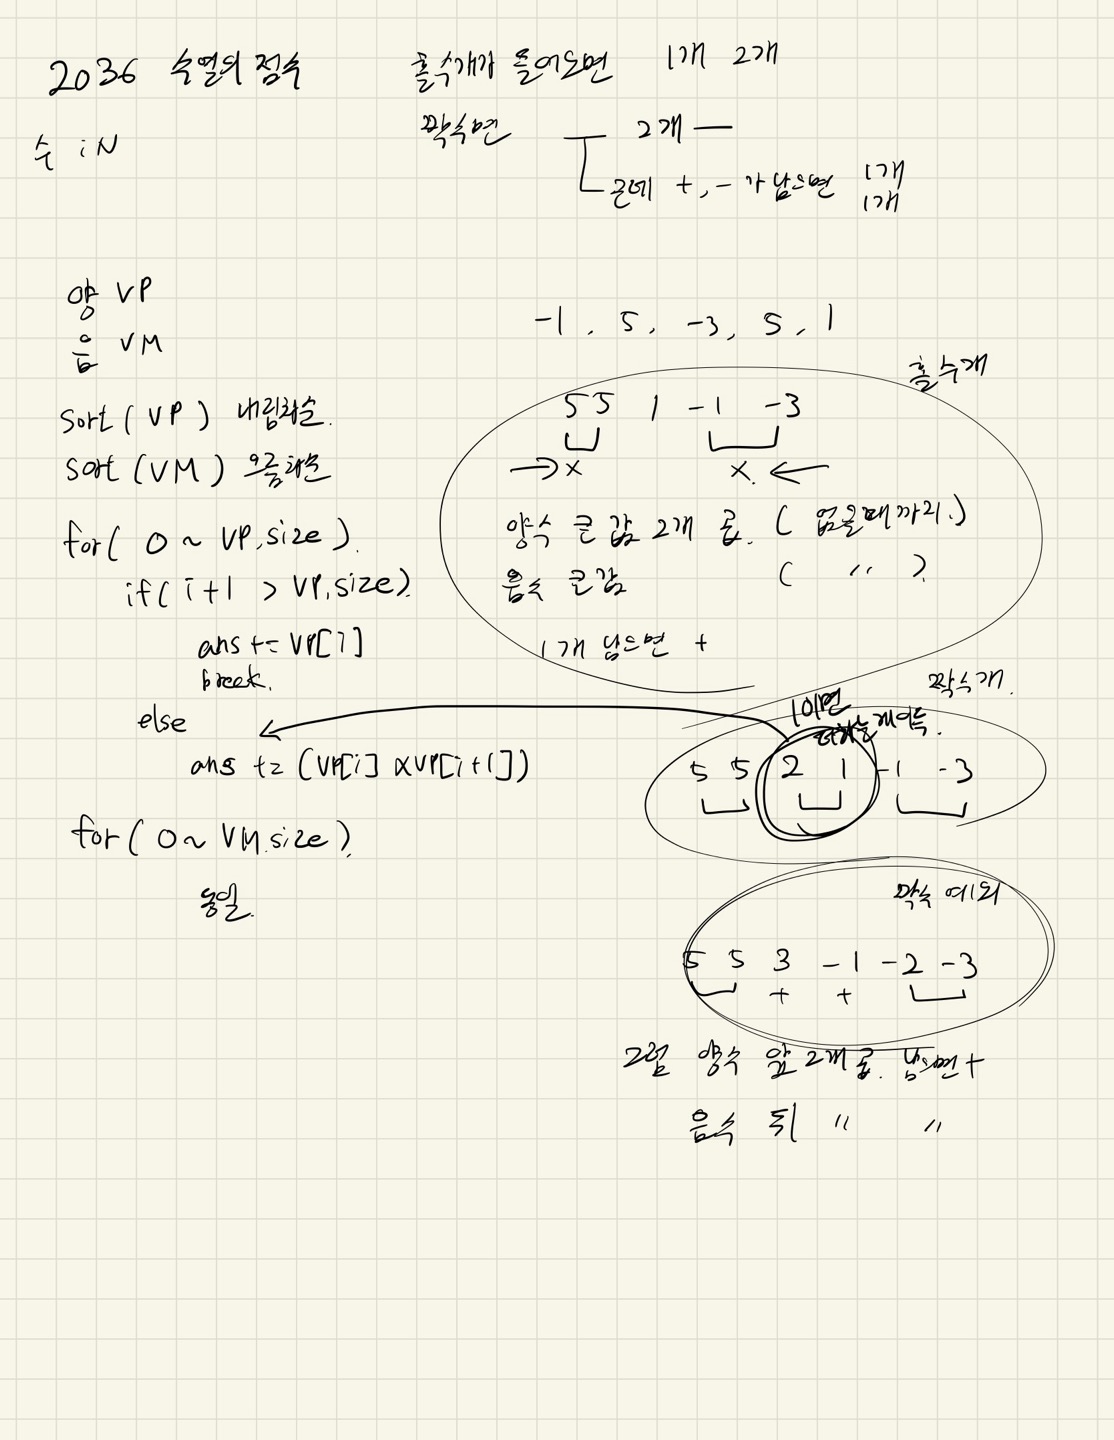 2036 수열의 점수
수 : N
홀수개가 들어오면 1개 2개
짝수면 2개
근데 +, - 가 남으면 1개
1개
양 VP
음 VM
sort ( VP ) 내림차순.
sort ( VM ) 오름차순
for ( 0 ~ VP.size ).
if ( i+1 > VP.size )
ans += VP[i]
break.
else
ans += (VP[i] × VP[i+1])
for ( 0 ~ VM.size ).
동일.
-1, 5, -3, 5, 1
홀수개
5 5 1 -1 -3
→ x x. ←
양수 큰 값 2개 곱. ( 없을때까지.)
음수 큰값 ( 〃 ).
1개 남으면 +
짝수개.
1이면
더하는게 이득.
5 5 2 1 -1 -3
짝수 예외
5 5 3 -1 -2 -3
+ +
그럼 양수 앞 2개 곱. 남으면 +
음수 뒤 〃 〃